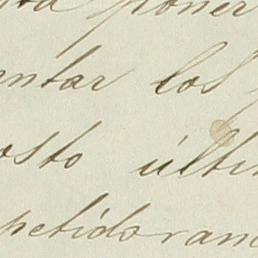 poner
ntar los
osto últi
petidoram